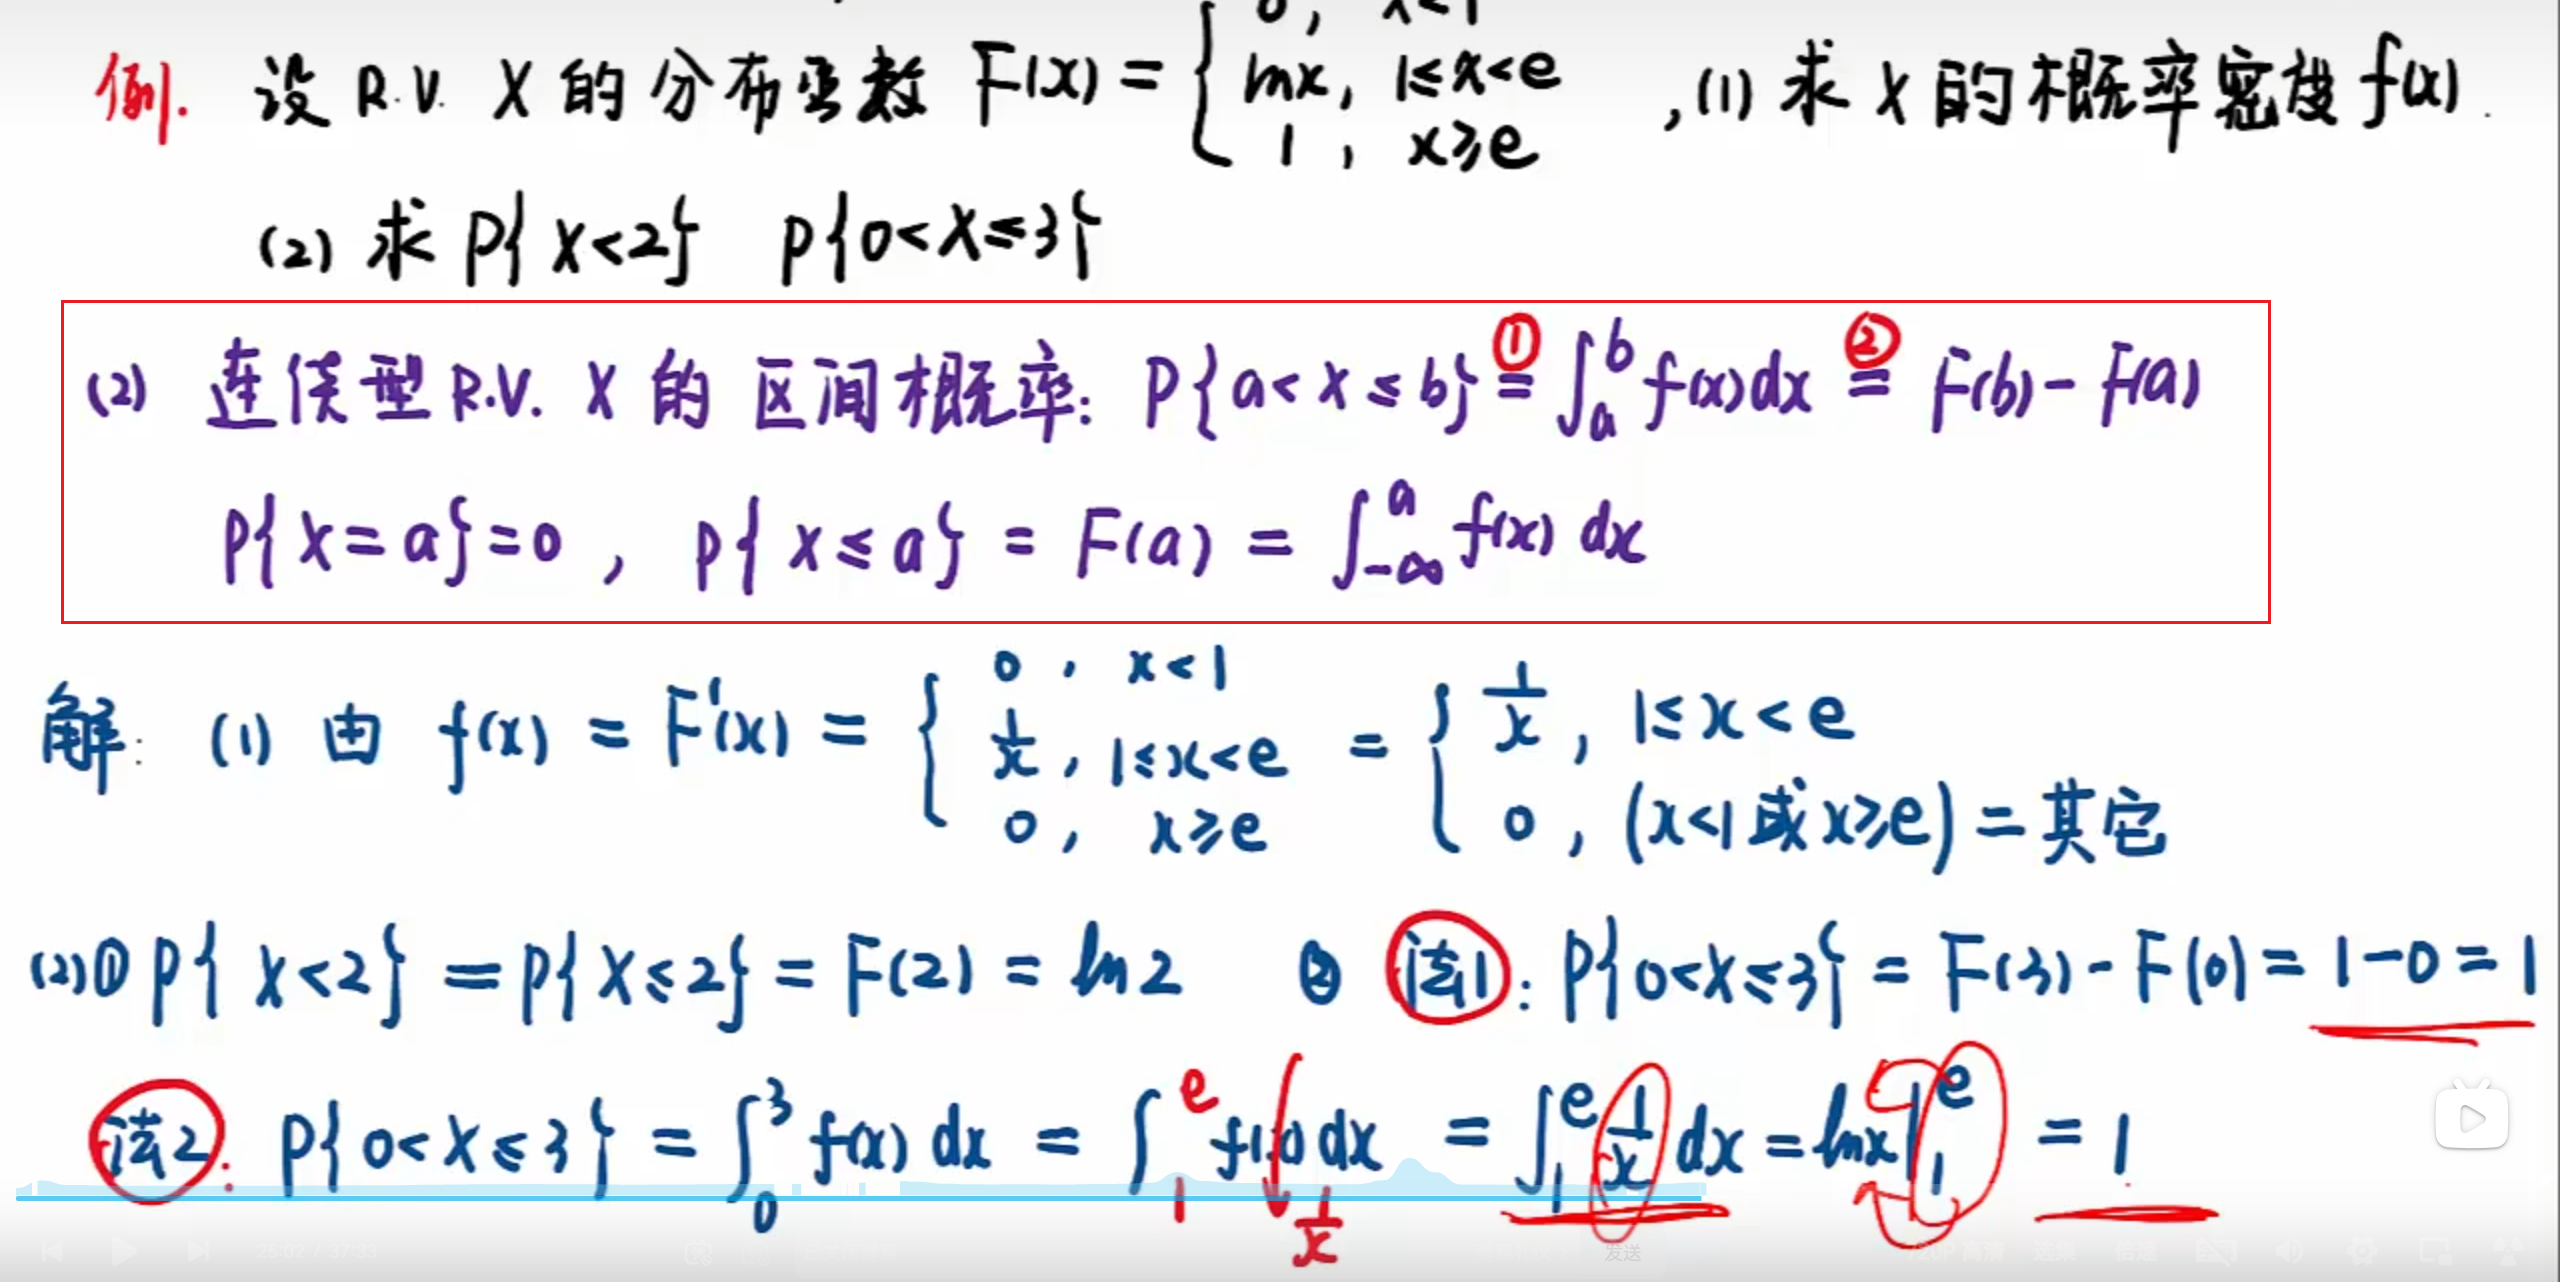 0, x<1
例. 设 R.V. X 的分布函数 F(x) = { lnx, 1≤x<e ,(1) 求 X 的概率密度 f(x).
1, x≥e
(2) 求 P{X<2} P{0<X≤3}
(2) 连续型 R.V. X 的 区间概率: P{a<X≤b} ①= ∫_a^b f(x)dx ②= F(b)-F(a)
P{X=a}=0, P{X≤a} = F(a) = ∫_{-∞}^a f(x) dx
解: (1) 由 f(x) = F'(x) = { 0, x<1 ; 1/x, 1≤x<e ; 0, x≥e = { 1/x, 1≤x<e ; 0, (x<1 或 x≥e) = 其它
(2)① P{X<2} = P{X≤2} = F(2) = ln2 ② 法1: P{0<X≤3} = F(3)-F(0) = 1-0 = 1
法2: P{0<X≤3} = ∫_0^3 f(x) dx = ∫_1^e f(x) dx = ∫_1^e 1/x dx = lnx|_1^e = 1
1/x
25:02 / 37:33
发送